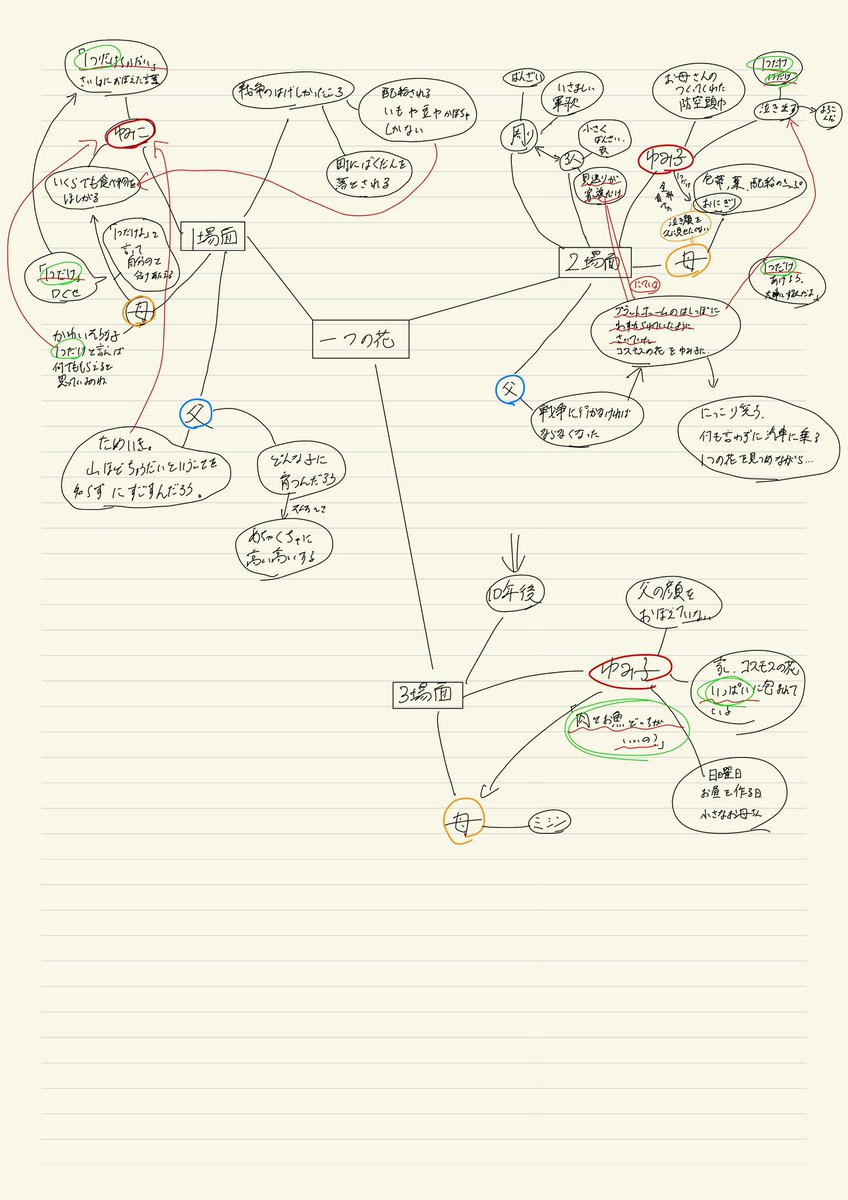 「1つだけちょうだい」
さいしょにおぼえた言葉
ゆみこ
いくらでも食べ物を
ほしがる
「1つだけ」
口ぐせ
「1つだけよ」と
言って
自分のを
分けあたえる
母
かわいそうな子
1つだけと言えば
何でももらえると
思っているのね
戦争のはげしかったころ
配給される
いもや豆やかぼちゃ
しかない
町にばくだんを
落とされる
1場面
父
ためいき。
山ほどちょうだいということを
知らずにすごすんだろう。
どんな子に
育つんだろう
めちゃくちゃに
高い高いする
一つの花
2場面
ばんざい
いさましい
軍歌
周り
3人
小さく
ばんざい、
歌
見送りが
家族だけ
お母さんの
つくってくれた
防空頭巾
ゆみ子
1つだけ
1つだけ
泣き出す
よろこ
んだ
1つだけ
全部
食べた
包帯、薬、配給のきっぷ
おにぎり
泣き顔を
父に見せたくない
母
「1つだけ
あげよう。
大事にするんだよ」
にている
プラットホームのはしっぽに
わすれられていたように
さいていた
コスモスの花をゆみ子に
父
戦争に行かなければ
ならなくなった
にっこり笑う。
何も言わずに汽車に乗る
1つの花を見つめながら…
10年後
3場面
父の顔を
おぼえていない
ゆみ子
家、コスモスの花
いっぱいに包まれて
いる
「肉とお魚どっちが
いいの?」
日曜日
お昼を作る日
小さなお母さん
母
ミシン